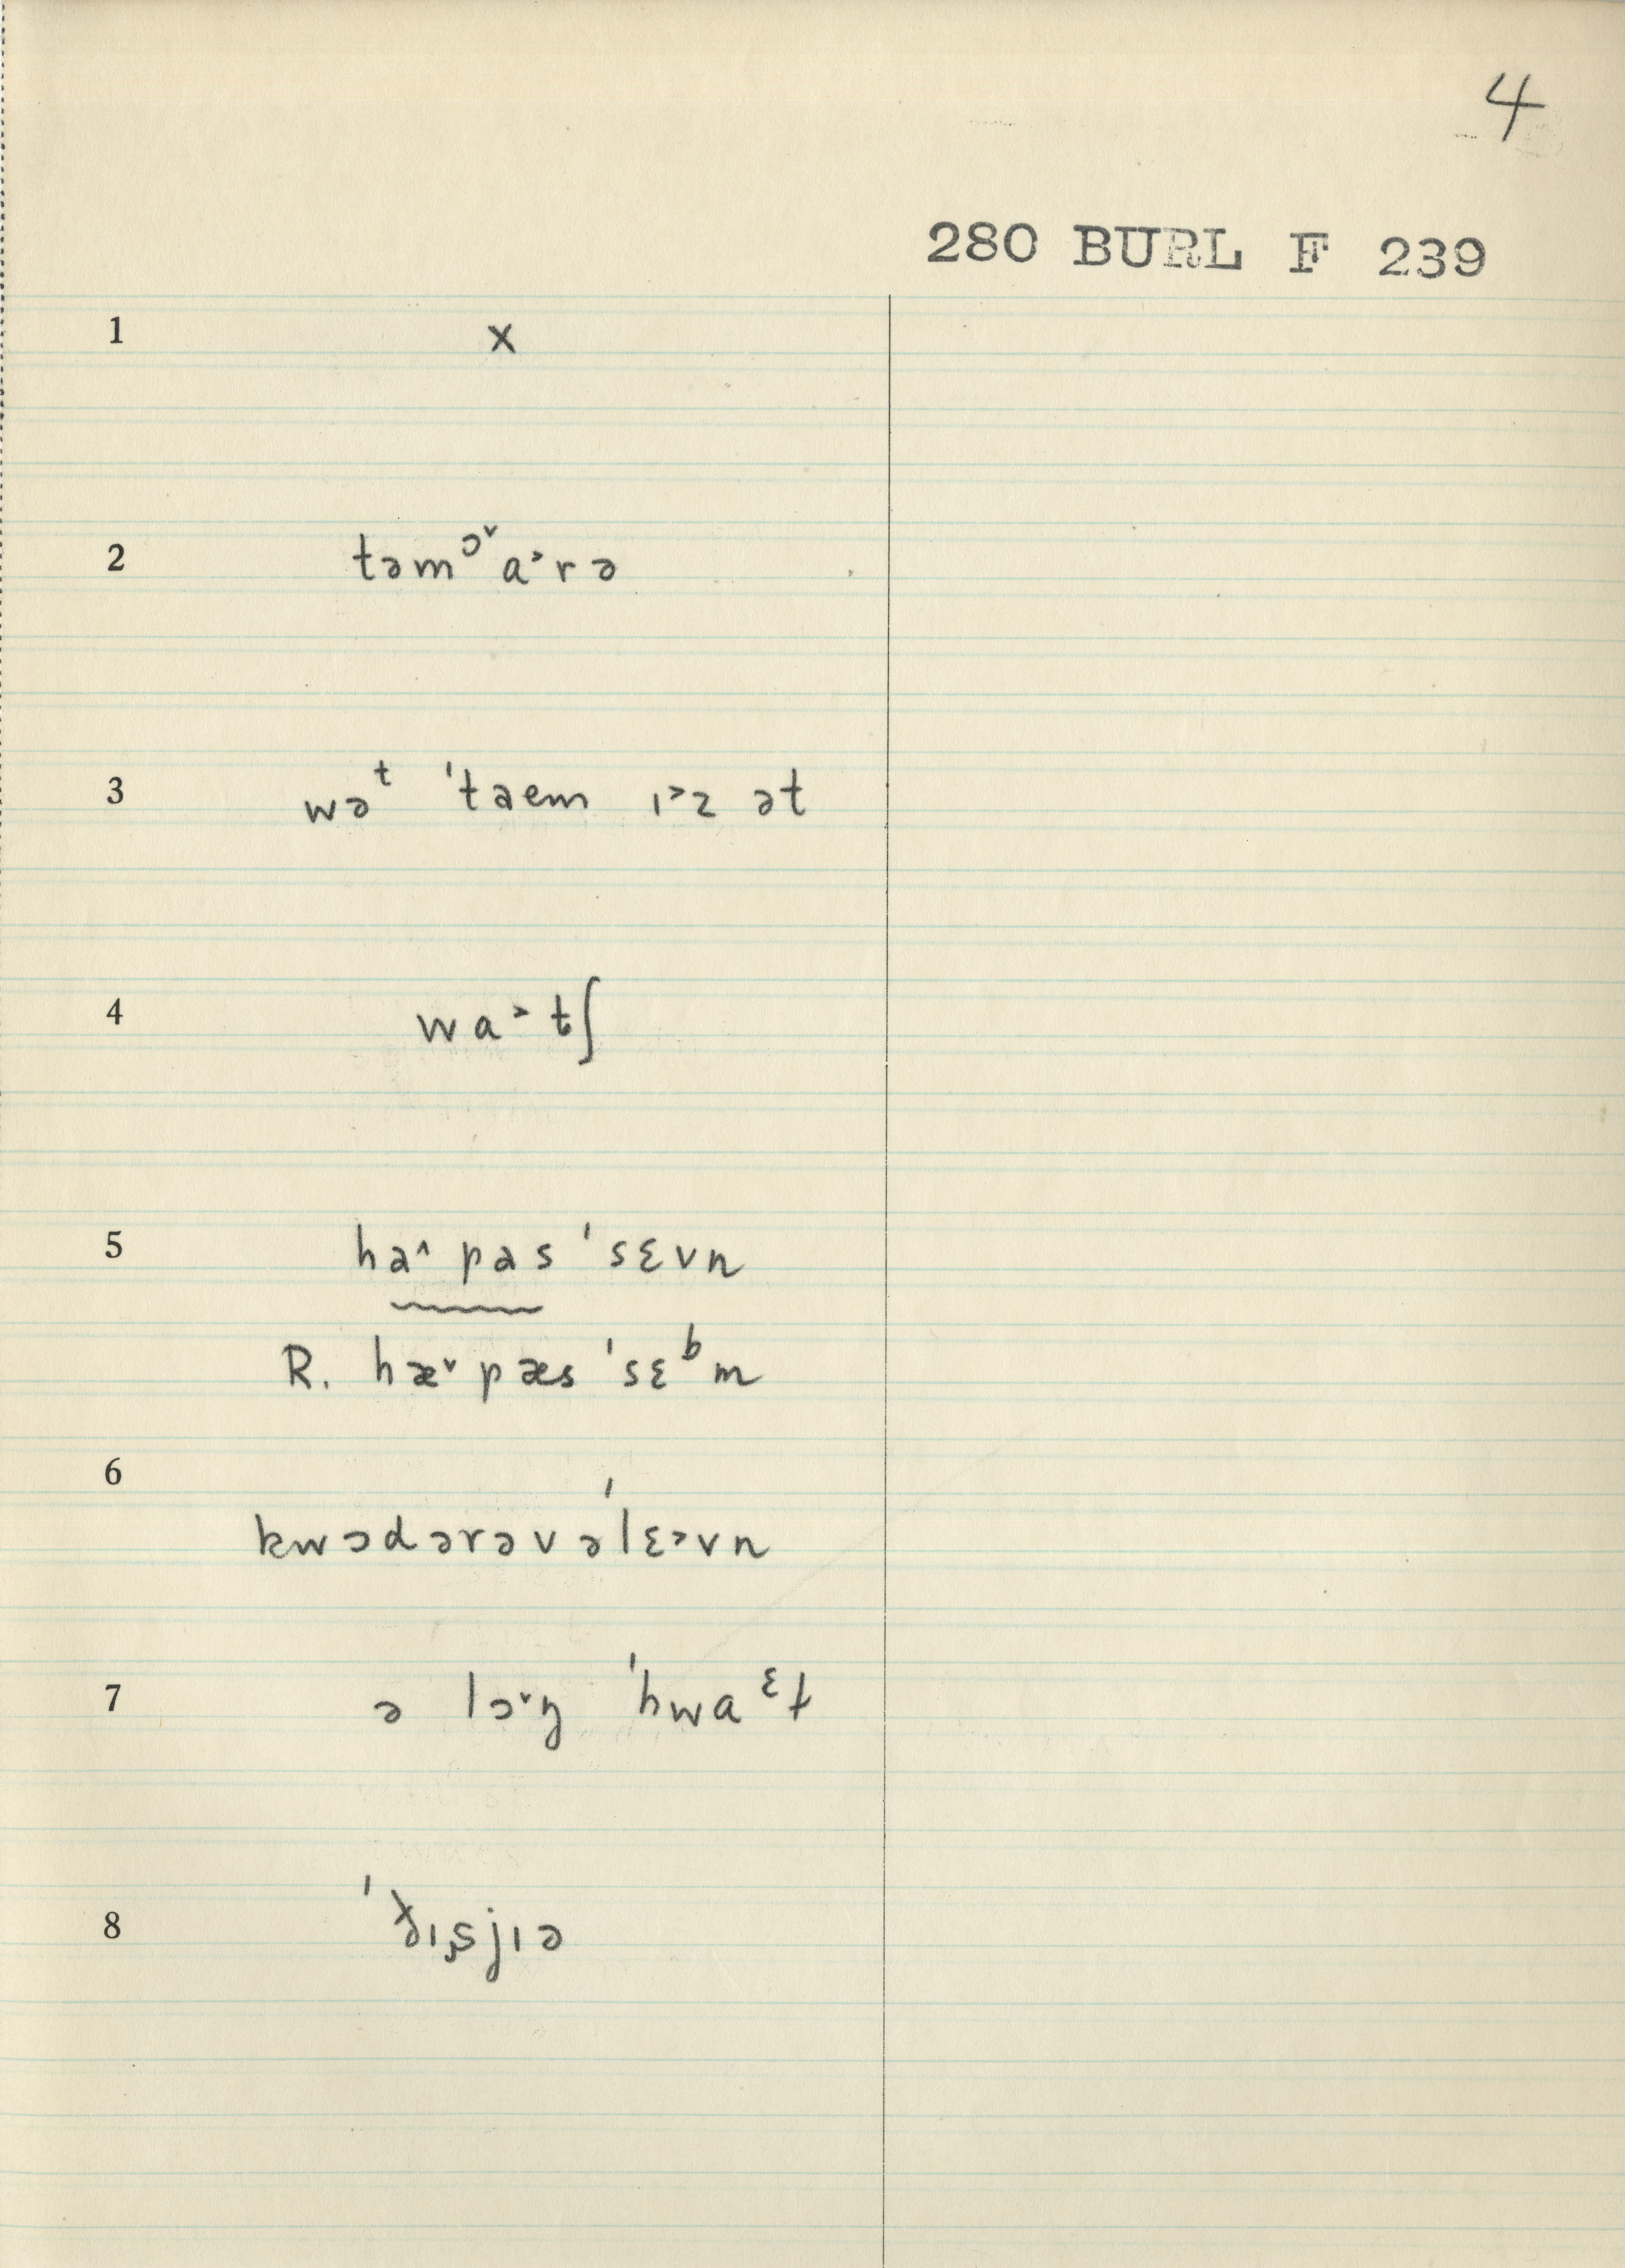 4
280 BURL F 239
1 x
2 təmᵓ˅a˃rə
3 wəᵗ ˈtaem ɪ˃z ət
4 wa˃tʃ
5 ha˄ pas ˈsɛvn
R. hæ˅ pæs ˈsɛᵇm
6 kwɔdərəv əˈlɛ˃vn
7 ə lɔ˅ŋ ˈhwaᵋt
8 ˈðɪsjɪə